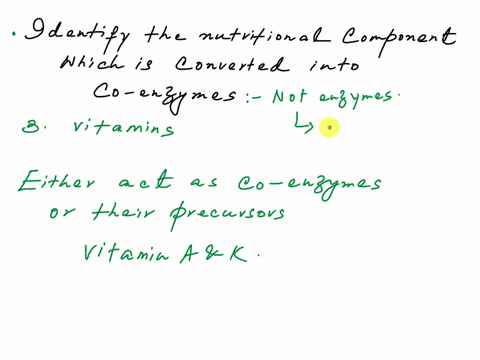 . Identify the nutritional Component
Which is converted into
Co-enzymes :- Not enzymes.
3. vitamins
Either act as Co-enzymes
or their precursors
Vitamin A & K.